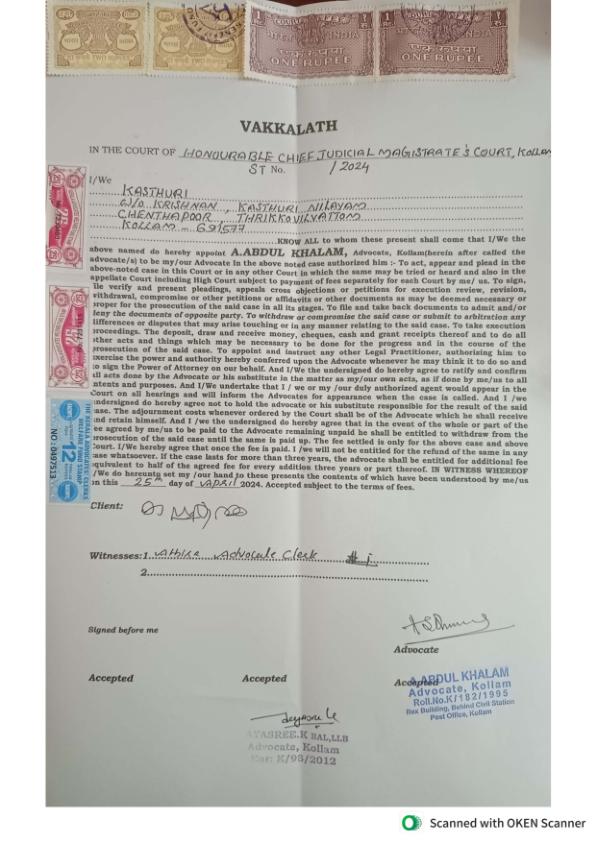 COURT FEE
INDIA
ONE RUPEE
ONE RUPEE
VAKKALATH
IN THE COURT OF HONOURABLE CHIEF JUDICIAL MAGISTRATE'S COURT, KOLLAM
ST No. /2024
I/We
KASTHURI
KRISHNAN, KASTHURI NILAYAM
CHENTHAPOOR, THRIKKOVILVATTOM
KOLLAM - 691577
KNOW ALL to whom these present shall come that I/We the
above named do hereby appoint A.ABDUL KHALAM, Advocate, Kollam(herein after called the
advocate/s) to be my/our Advocate in the above noted case authorized him :- To act, appear and plead in the
above-noted case in this Court or in any other Court in which the same may be tried or heard and also in the
appellate Court including High Court subject to payment of fees separately for each Court by me/ us. To sign,
file verify and present pleadings, appeals cross objections or petitions for execution review, revision,
withdrawal, compromise or other petitions or affidavits or other documents as may be deemed necessary or
proper for the prosecution of the said case in all its stages. To file and take back documents to admit and/or
deny the documents of opposite party. To withdraw or compromise the said case or submit to arbitration any
differences or disputes that may arise touching or in any manner relating to the said case. To take execution
proceedings. The deposit, draw and receive money, cheques, cash and grant receipts thereof and to do all
other acts and things which may be necessary to be done for the progress and in the course of the
prosecution of the said case. To appoint and instruct any other Legal Practitioner, authorising him to
exercise the power and authority hereby conferred upon the Advocate whenever he may think it to do so and
to sign the Power of Attorney on our behalf. And I/We the undersigned do hereby agree to ratify and confirm
all acts done by the Advocate or his substitute in the matter as my/our own acts, as if done by me/us to all
intents and purposes. And I/We undertake that I / we or my /our duly authorized agent would appear in the
Court on all hearings and will inform the Advocates for appearance when the case is called. And I /we
undersigned do hereby agree not to hold the advocate or his substitute responsible for the result of the said
case. The adjournment costs whenever ordered by the Court shall be of the Advocate which he shall receive
and retain himself. And I /we the undersigned do hereby agree that in the event of the whole or part of the
fee agreed by me/us to be paid to the Advocate remaining unpaid he shall be entitled to withdraw from the
prosecution of the said case until the same is paid up. The fee settled is only for the above case and above
Court. I/We hereby agree that once the fee is paid. I /we will not be entitled for the refund of the same in any
case whatsoever. If the case lasts for more than three years, the advocate shall be entitled for additional fee
equivalent to half of the agreed fee for every addition three years or part thereof. IN WITNESS WHEREOF
I/We do hereunto set my /our hand to these presents the contents of which have been understood by me/us
on this 25th day of APRIL 2024. Accepted subject to the terms of fees.
THE KERALA ADVOCATES' CLERKS
WELFARE FUND STAMP
12
NO: 0497513
Client:
Witnesses:1. Advocate Clerk
2.
Signed before me
Advocate
Accepted Accepted Accepted
A.ABDUL KHALAM
Advocate, Kollam
Roll.No.K/182/1995
Box Building, Behind Civil Station
Post Office, Kollam
JAYASREE.K BAL,LLB
Advocate, Kollam
Enr: K/98/2012
Scanned with OKEN Scanner